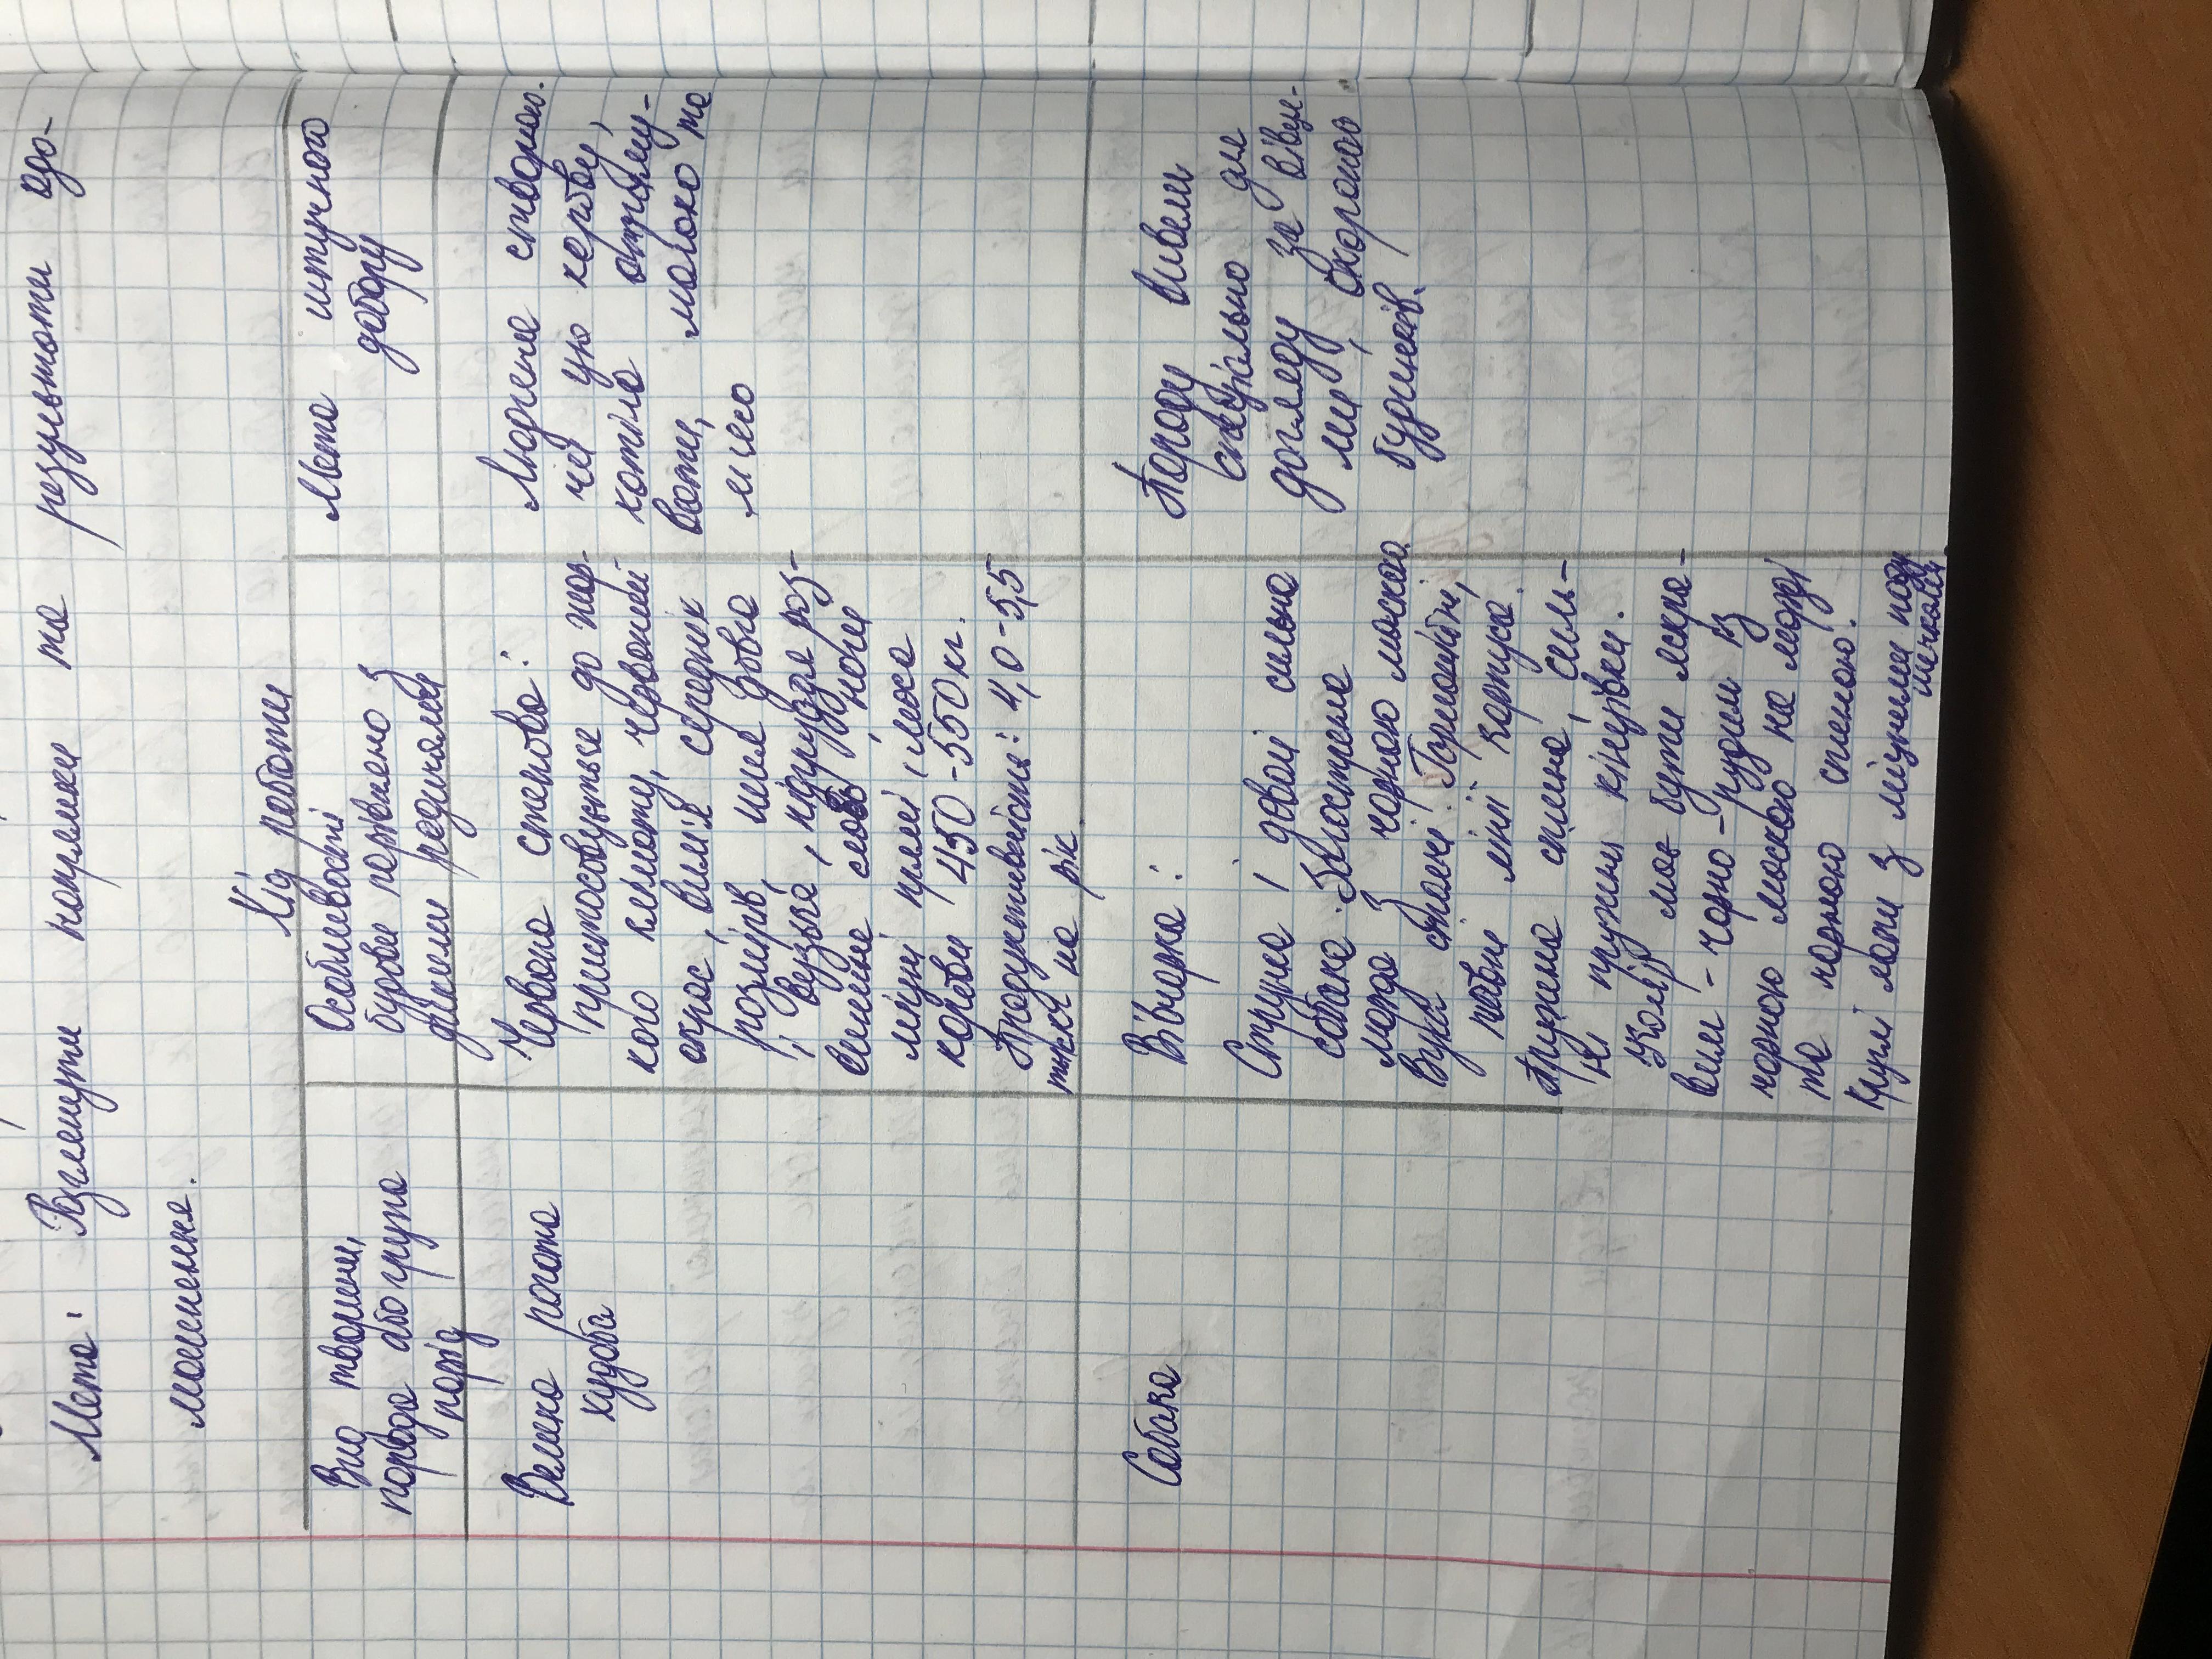 Мета: Розглянути напрямки та результати одо-
машнення.
Хід роботи
Вид тварини,
порода або група
порід
Особливості
будови порівняно з
дикими родичами
Мета штучного
добору
Велика рогата
худоба
Червона степова:
пристосовується до жар-
кого клімату, червоний
окрас, вим'я середніх
розмірів, шия довга
і вузька, підгруддя роз-
винене слабо, ноги
міцні прямі, маса
корови 450-550 кг.
Продуктивність: 4,0-5,5
тисяч на рік
Людина створюю-
чи цю корову,
хотіла отриму-
вати, молоко та
м'ясо
Собака
Вівчарка:
Струнка і доволі сильна
собака. Загострена
морда з чорною маскою.
Вуха стоячі. Гармонійні,
плавні лінії корпуса.
Пряма спина, силь-
ні пружні кінцівки.
Колір має бути яскра-
вим - чорно-рудим із
чорною маскою на морді
та чорною спиною.
Круглі лапи з міцними поду
шечками
Породу вивели
спеціально для
догляду за вівця-
ми, охороною
будинків.